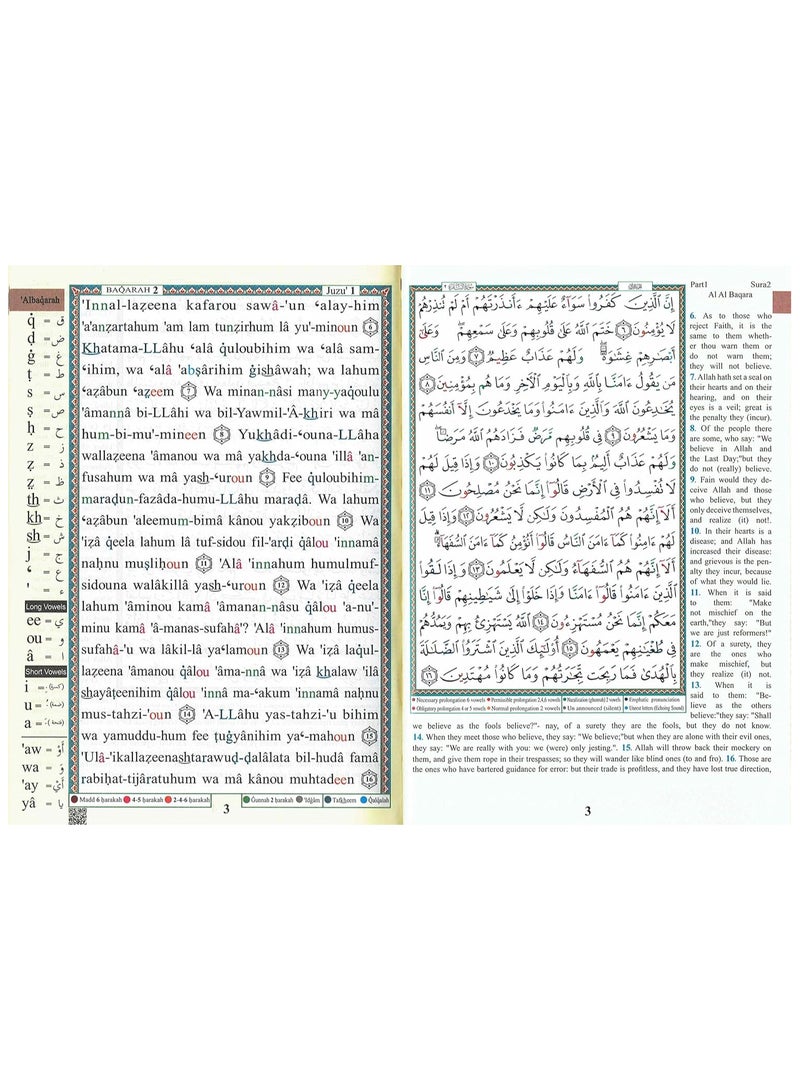 'Albaq̇arah
q̇ = ق
ḍ = ض
ġ = غ
ṭ = ط
s = س
ṣ = ص
ḥ = ح
z = ز
ẓ = ذ
ẓ = ظ
th = ث
kh = خ
sh = ش
j = ج
ʿ = ع
' = ء
Long Vowels
ee = ي
ou = و
â = ا
Short Vowels
i =
u =
a =
'aw = أَوْ
wa = وَ
'ay = أَيْ
yâ = يا
BAQ̇ARAH 2
Juzu' 1
'Innal-laẓeena kafarou sawâ-'un ʿalay-him
'a'anẓartahum 'am lam tunẓirhum lâ yu'-minoun 6
Khatama-LLâhu ʿalâ q̇uloubihim wa ʿalâ sam-
ʿihim, wa ʿalâ 'abṣârihim ġishâwah; wa lahum
ʿaẓâbun ʿaẓeem 7 Wa minan-nâsi many-yaq̇oulu
'âmannâ bi-LLâhi wa bil-Yawmil-'Â-khiri wa mâ
hum-bi-mu'-mineen 8 Yukhâdi-ʿouna-LLaha
wallaẓeena 'âmanou wa mâ yakhda-ʿouna 'illâ 'an-
fusahum wa mâ yash-ʿuroun 9 Fee q̇uloubihim-
maraḍun-fazâda-humu-LLahu maraḍâ. Wa lahum
ʿaẓâbun 'aleemum-bimâ kânou yakẓiboun 10 Wa
'iẓâ q̇eela lahum lâ tuf-sidou fil-'arḍi q̇âlou 'innamâ
naḥnu muṣliḥoun 11 'Alâ 'innahum humulmuf-
sidouna walâkillâ yash-ʿuroun 12 Wa 'iẓâ q̇eela
lahum 'âminou kamâ 'âmanan-nâsu q̇âlou 'a-nu'-
minu kamâ 'â-manas-sufahâ'? 'Alâ 'innahum humus-
sufahâ-'u wa lâkil-lâ yaʿlamoun 13 Wa 'iẓâ laq̇ul-
laẓeena 'âmanou q̇âlou 'âma-nnâ wa 'iẓâ khalaw 'ilâ
shayâṭeenihim q̇âlou 'innâ ma-ʿakum 'innamâ naḥnu
mus-tahzi-'oun 14 'A-LLâhu yas-tahzi-'u bihim
wa yamuddu-hum fee ṭuġyânihim yaʿ-mahoun 15
'Ulâ-'ikallaẓeenashtarawuḍ-ḍalâlata bil-hudâ famâ
rabiḥat-tijâratuhum wa mâ kânou muhtadeen 16
Madd 6 ḥarakah 4-5 ḥarakah 2-4-6 ḥarakah
Ġunnah 2 ḥarakah 'Idġâm Tafkheem Q̇alq̇alah
3
إِنَّ ٱلَّذِينَ كَفَرُوا۟ سَوَآءٌ عَلَيْهِمْ ءَأَنذَرْتَهُمْ أَمْ لَمْ تُنذِرْهُمْ
لَا يُؤْمِنُونَ ٦ خَتَمَ ٱللَّهُ عَلَىٰ قُلُوبِهِمْ وَعَلَىٰ سَمْعِهِمْ ۖ وَعَلَىٰٓ
أَبْصَـٰرِهِمْ غِشَـٰوَةٌ ۖ وَلَهُمْ عَذَابٌ عَظِيمٌ ٧ وَمِنَ ٱلنَّاسِ
مَن يَقُولُ ءَامَنَّا بِٱللَّهِ وَبِٱلْيَوْمِ ٱلْـَٔاخِرِ وَمَا هُم بِمُؤْمِنِينَ ٨
يُخَـٰدِعُونَ ٱللَّهَ وَٱلَّذِينَ ءَامَنُوا۟ وَمَا يَخْدَعُونَ إِلَّآ أَنفُسَهُمْ
وَمَا يَشْعُرُونَ ٩ فِى قُلُوبِهِم مَّرَضٌ فَزَادَهُمُ ٱللَّهُ مَرَضًا ۖ
وَلَهُمْ عَذَابٌ أَلِيمٌۢ بِمَا كَانُوا۟ يَكْذِبُونَ ١٠ وَإِذَا قِيلَ لَهُمْ
لَا تُفْسِدُوا۟ فِى ٱلْأَرْضِ قَالُوٓا۟ إِنَّمَا نَحْنُ مُصْلِحُونَ ١١
أَلَآ إِنَّهُمْ هُمُ ٱلْمُفْسِدُونَ وَلَـٰكِن لَّا يَشْعُرُونَ ١٢ وَإِذَا قِيلَ
لَهُمْ ءَامِنُوا۟ كَمَآ ءَامَنَ ٱلنَّاسُ قَالُوٓا۟ أَنُؤْمِنُ كَمَآ ءَامَنَ ٱلسُّفَهَآءُ ۗ
أَلَآ إِنَّهُمْ هُمُ ٱلسُّفَهَآءُ وَلَـٰكِن لَّا يَعْلَمُونَ ١٣ وَإِذَا لَقُوا۟
ٱلَّذِينَ ءَامَنُوا۟ قَالُوٓا۟ ءَامَنَّا وَإِذَا خَلَوْا۟ إِلَىٰ شَيَـٰطِينِهِمْ قَالُوٓا۟ إِنَّا
مَعَكُمْ إِنَّمَا نَحْنُ مُسْتَهْزِءُونَ ١٤ ٱللَّهُ يَسْتَهْزِئُ بِهِمْ وَيَمُدُّهُمْ
فِى طُغْيَـٰنِهِمْ يَعْمَهُونَ ١٥ أُو۟لَـٰٓئِكَ ٱلَّذِينَ ٱشْتَرَوُا۟ ٱلضَّلَـٰلَةَ
بِٱلْهُدَىٰ فَمَا رَبِحَت تِّجَـٰرَتُهُمْ وَمَا كَانُوا۟ مُهْتَدِينَ ١٦
Necessary prolongation 6 vowels Permissible prolongation 2,4,6 vowels Nazalization (ghunnah) 2 vowels Emphatic pronunciation
Obligatory prolongation 4 or 5 vowels Normal prolongation 2 vowels Un announced (silent) Unrest letters (Echoing Sound)
Part1 Sura2
Al Al Baqara
6. As to those who
reject Faith, it is the
same to them wheth-
er thou warn them or
do not warn them;
they will not believe.
7. Allah hath set a seal on
their hearts and on their
hearing, and on their
eyes is a veil; great is
the penalty they (incur).
8. Of the people there
are some, who say: "We
believe in Allah and
the Last Day;"but they
do not (really) believe.
9. Fain would they de-
ceive Allah and those
who believe, but they
only deceive themselves,
and realize (it) not!.
10. In their hearts is a
disease; and Allah has
increased their disease:
and grievous is the pen-
alty they incur, because
of what they would lie.
11. When it is said
to them: "Make
not mischief on the
earth,"they say: "But
we are just reformers!"
12. Of a surety, they
are the ones who
make mischief, but
they realize (it) not.
13. When it is
said to them: "Be-
lieve as the others
believe:"they say: "Shall
we believe as the fools believe?"- nay, of a surety they are the fools, but they do not know.
14. When they meet those who believe, they say: "We believe;"but when they are alone with their evil ones,
they say: "We are really with you: we (were) only jesting.". 15. Allah will throw back their mockery on
them, and give them rope in their trespasses; so they will wander like blind ones (to and fro). 16. Those are
the ones who have bartered guidance for error: but their trade is profitless, and they have lost true direction,
3